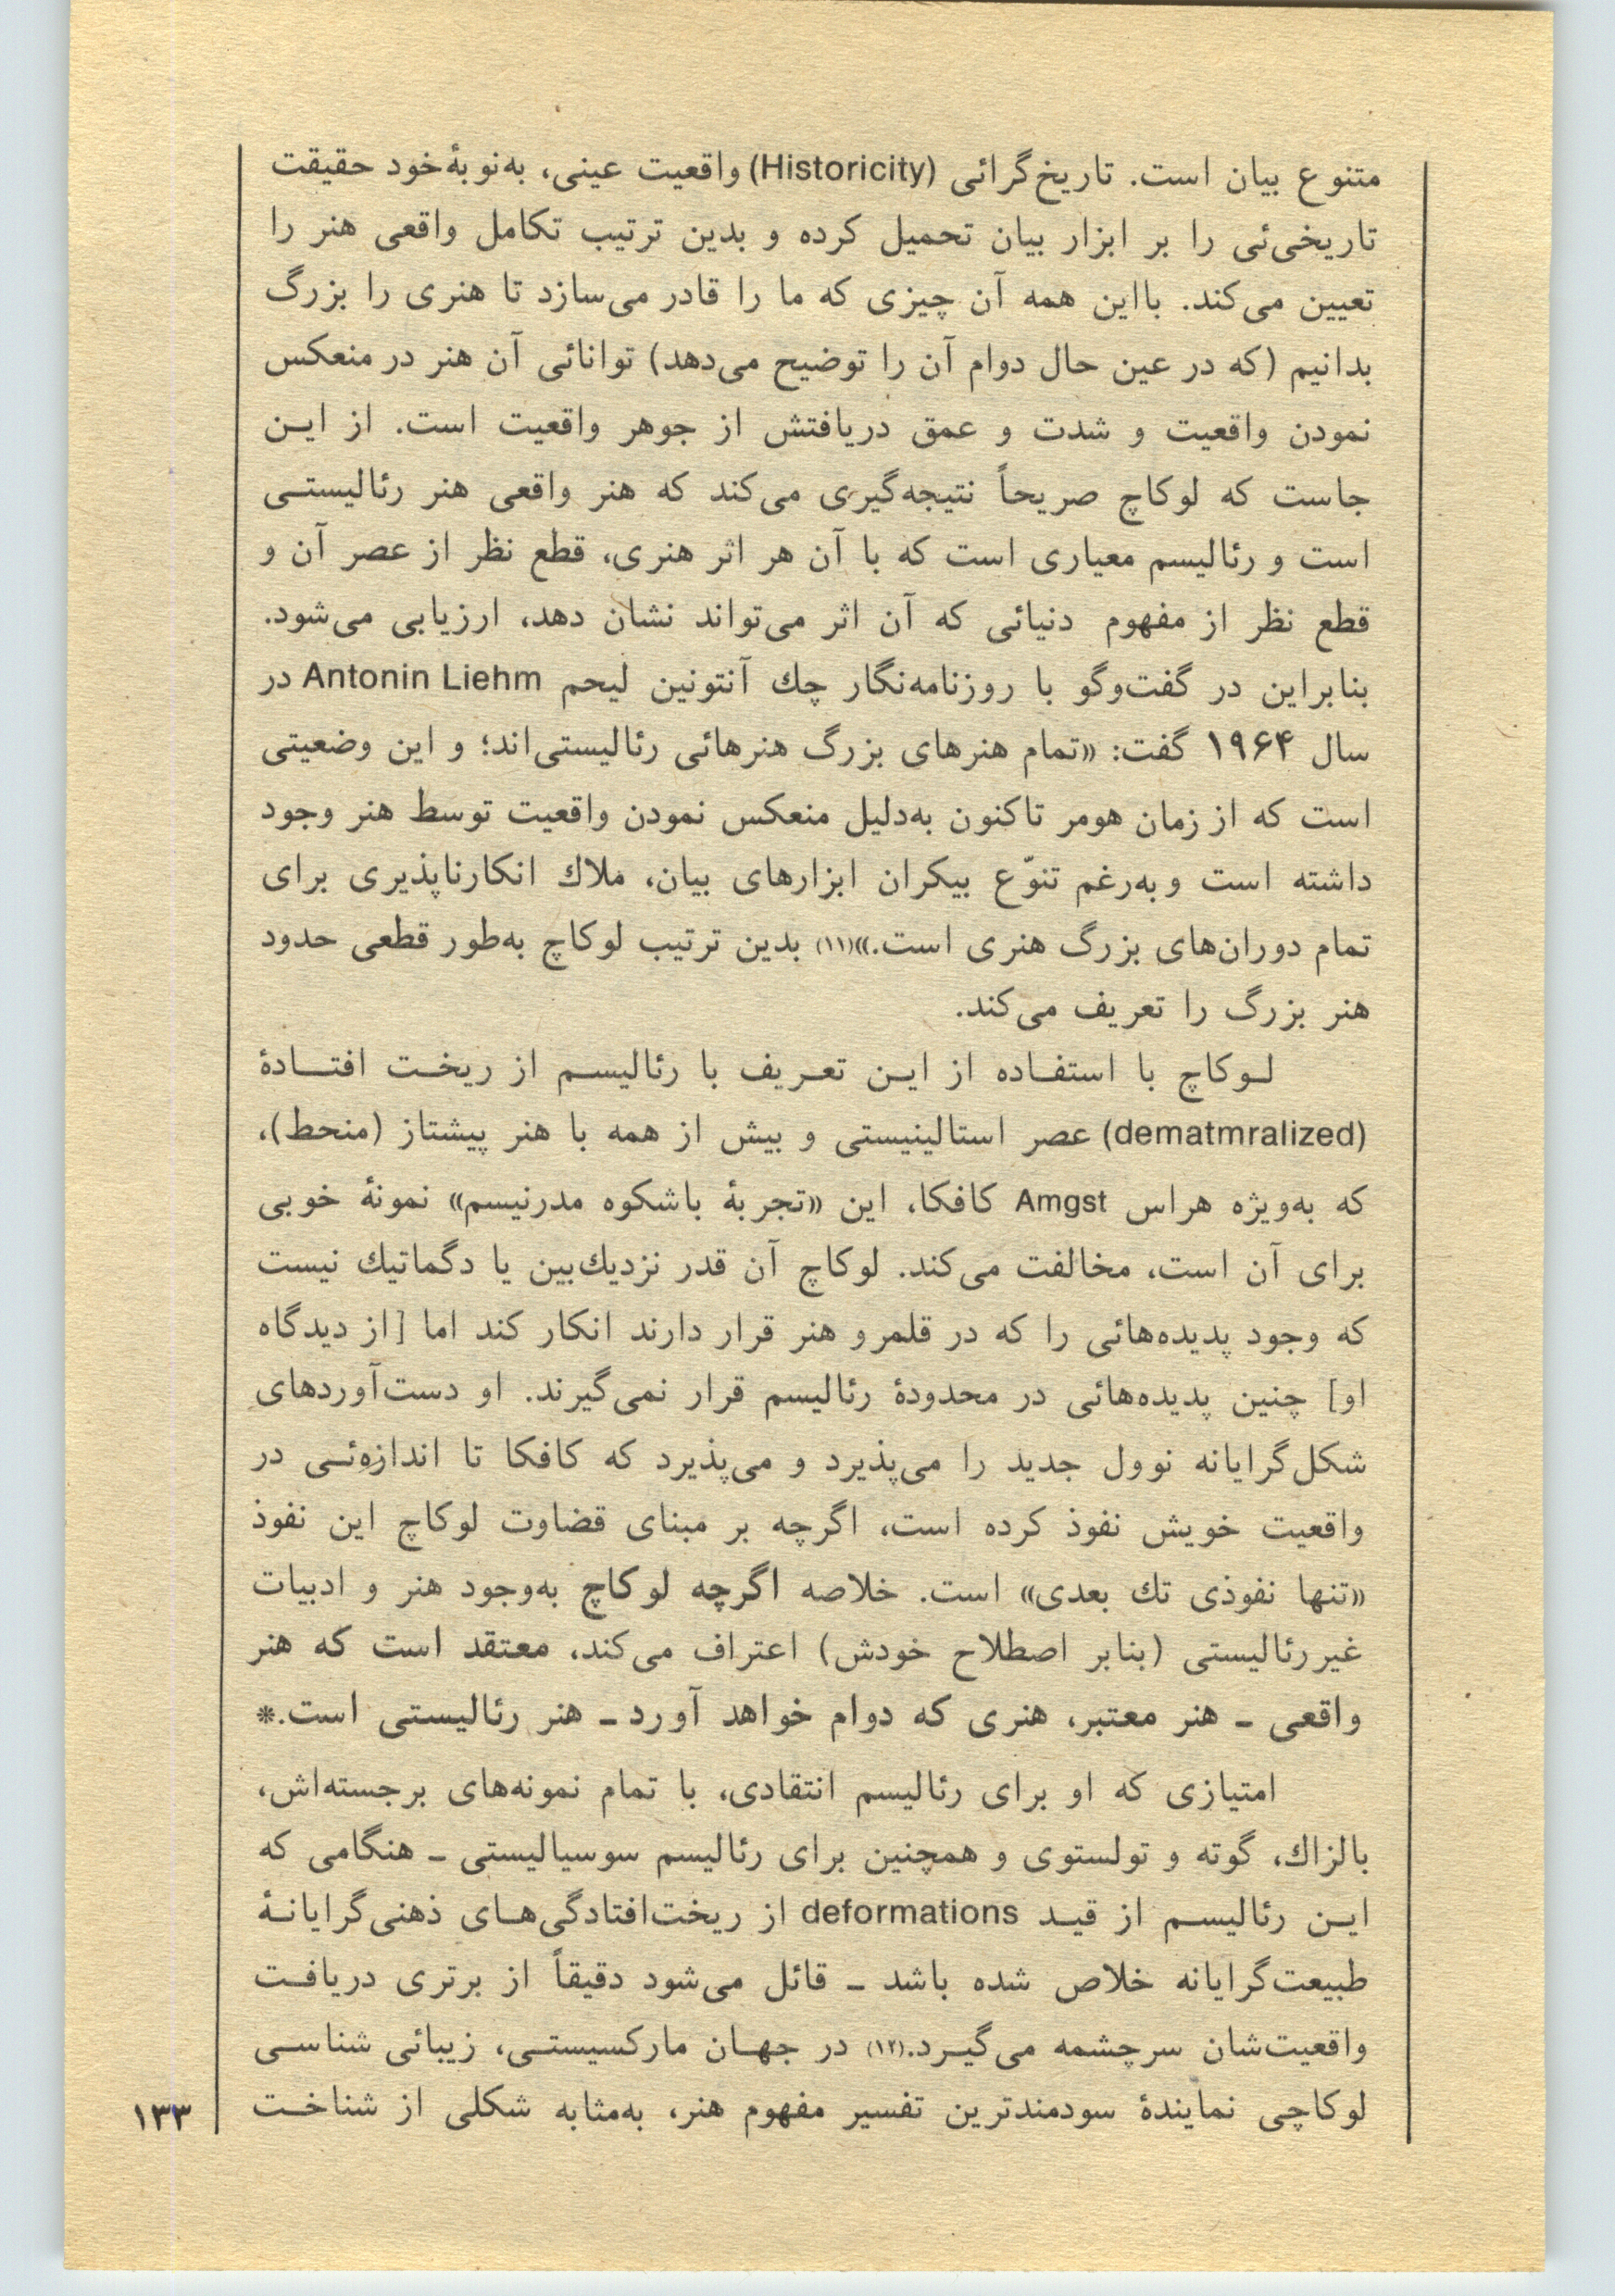 متنوع بیان است. تاریخ‌گرائی (Historicity) واقعیت عینی، به‌نوبهٔ‌خود حقیقت
تاریخی‌ئی را بر ابزار بیان تحمیل کرده و بدین ترتیب تکامل واقعی هنر را
تعیین می‌کند. بااین همه آن چیزی که ما را قادر می‌سازد تا هنری را بزرگ
بدانیم (که در عین حال دوام آن را توضیح می‌دهد) توانائی آن هنر در منعکس
نمودن واقعیت و شدت و عمق دریافتش از جوهر واقعیت است. از ایـن
جاست که لوکاچ صریحاً نتیجه‌گیری می‌کند که هنر واقعی هنر رئالیستـی
است و رئالیسم معیاری است که با آن هر اثر هنری، قطع نظر از عصر آن و
قطع نظر از مفهوم دنیائی که آن اثر می‌تواند نشان دهد، ارزیابی می‌شود.
بنابراین در گفت‌وگو با روزنامه‌نگار چك آنتونین لیحم Antonin Liehm در
سال ۱۹۶۴ گفت: «تمام هنرهای بزرگ هنرهائی رئالیستی‌اند؛ و این وضعیتی
است که از زمان هومر تاکنون به‌دلیل منعکس نمودن واقعیت توسط هنر وجود
داشته است و به‌رغم تنوّع بیکران ابزارهای بیان، ملاك انکارناپذیری برای
تمام دوران‌های بزرگ هنری است.»(۱۱) بدین ترتیب لوکاچ به‌طور قطعی حدود
هنر بزرگ را تعریف می‌کند.
لـوکاچ با استفـاده از ایـن تعـریف با رئالیسـم از ریخـت افتـادهٔ
(dematmralized) عصر استالینیستی و بیش از همه با هنر پیشتاز (منحط)،
که به‌ویژه هراس Amgst کافکا، این «تجربهٔ باشکوه مدرنیسم» نمونهٔ خوبی
برای آن است، مخالفت می‌کند. لوکاچ آن قدر نزدیك‌بین یا دگماتیك نیست
که وجود پدیده‌هائی را که در قلمرو هنر قرار دارند انکار کند اما [از دیدگاه
او] چنین پدیده‌هائی در محدودهٔ رئالیسم قرار نمی‌گیرند. او دست‌آوردهای
شکل‌گرایانه نوول جدید را می‌پذیرد و می‌پذیرد که کافکا تا اندازه‌ئـی در
واقعیت خویش نفوذ کرده است، اگرچه بر مبنای قضاوت لوکاچ این نفوذ
«تنها نفوذی تك بعدی» است. خلاصه اگرچه لوکاچ به‌وجود هنر و ادبیات
غیررئالیستی (بنابر اصطلاح خودش) اعتراف می‌کند، معتقد است که هنر
واقعی ـ هنر معتبر، هنری که دوام خواهد آورد ـ هنر رئالیستی است.*
امتیازی که او برای رئالیسم انتقادی، با تمام نمونه‌های برجسته‌اش،
بالزاك، گوته و تولستوی و همچنین برای رئالیسم سوسیالیستی ـ هنگامی که
ایـن رئالیسـم از قیـد deformations از ریخت‌افتادگی‌هـای ذهنی‌گرایانـهٔ
طبیعت‌گرایانه خلاص شده باشد ـ قائل می‌شود دقیقاً از برتری دریافـت
واقعیت‌شان سرچشمه می‌گیـرد.(۱۲) در جهـان مارکسیستـی، زیبائی شناسـی
لوکاچی نمایندهٔ سودمندترین تفسیر مفهوم هنر، به‌مثابه شکلی از شناخـت
۱۳۳